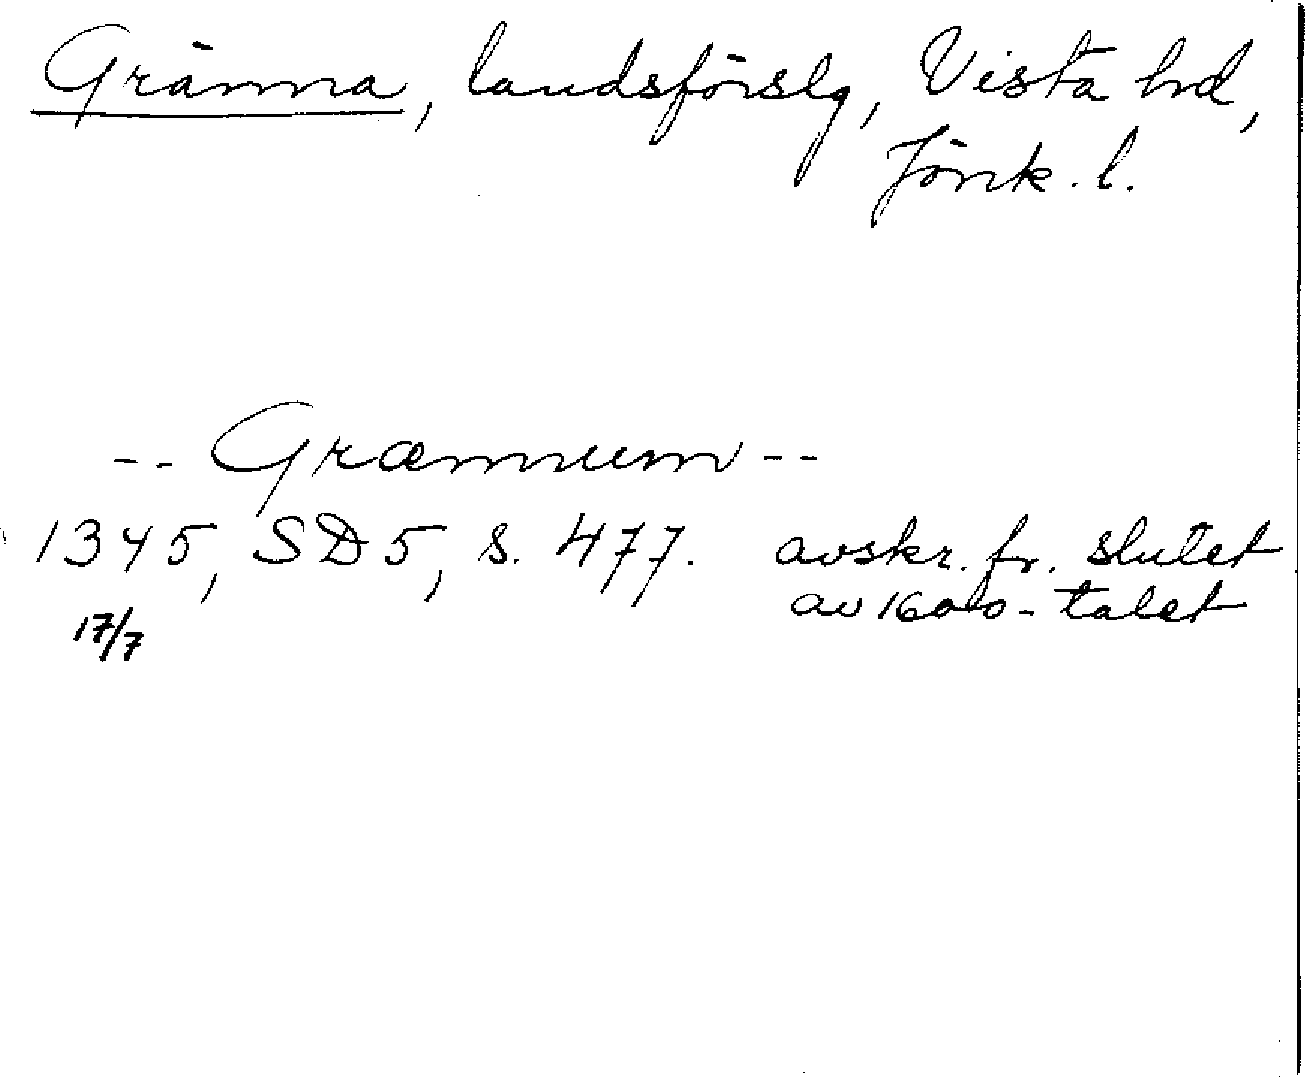 Gränna, landsförslg, Vista hd,
Jönk. l.
-- Grænnum --
1345, SD 5, s. 477. avskr. fr. slutet
av 1600-talet
17/7